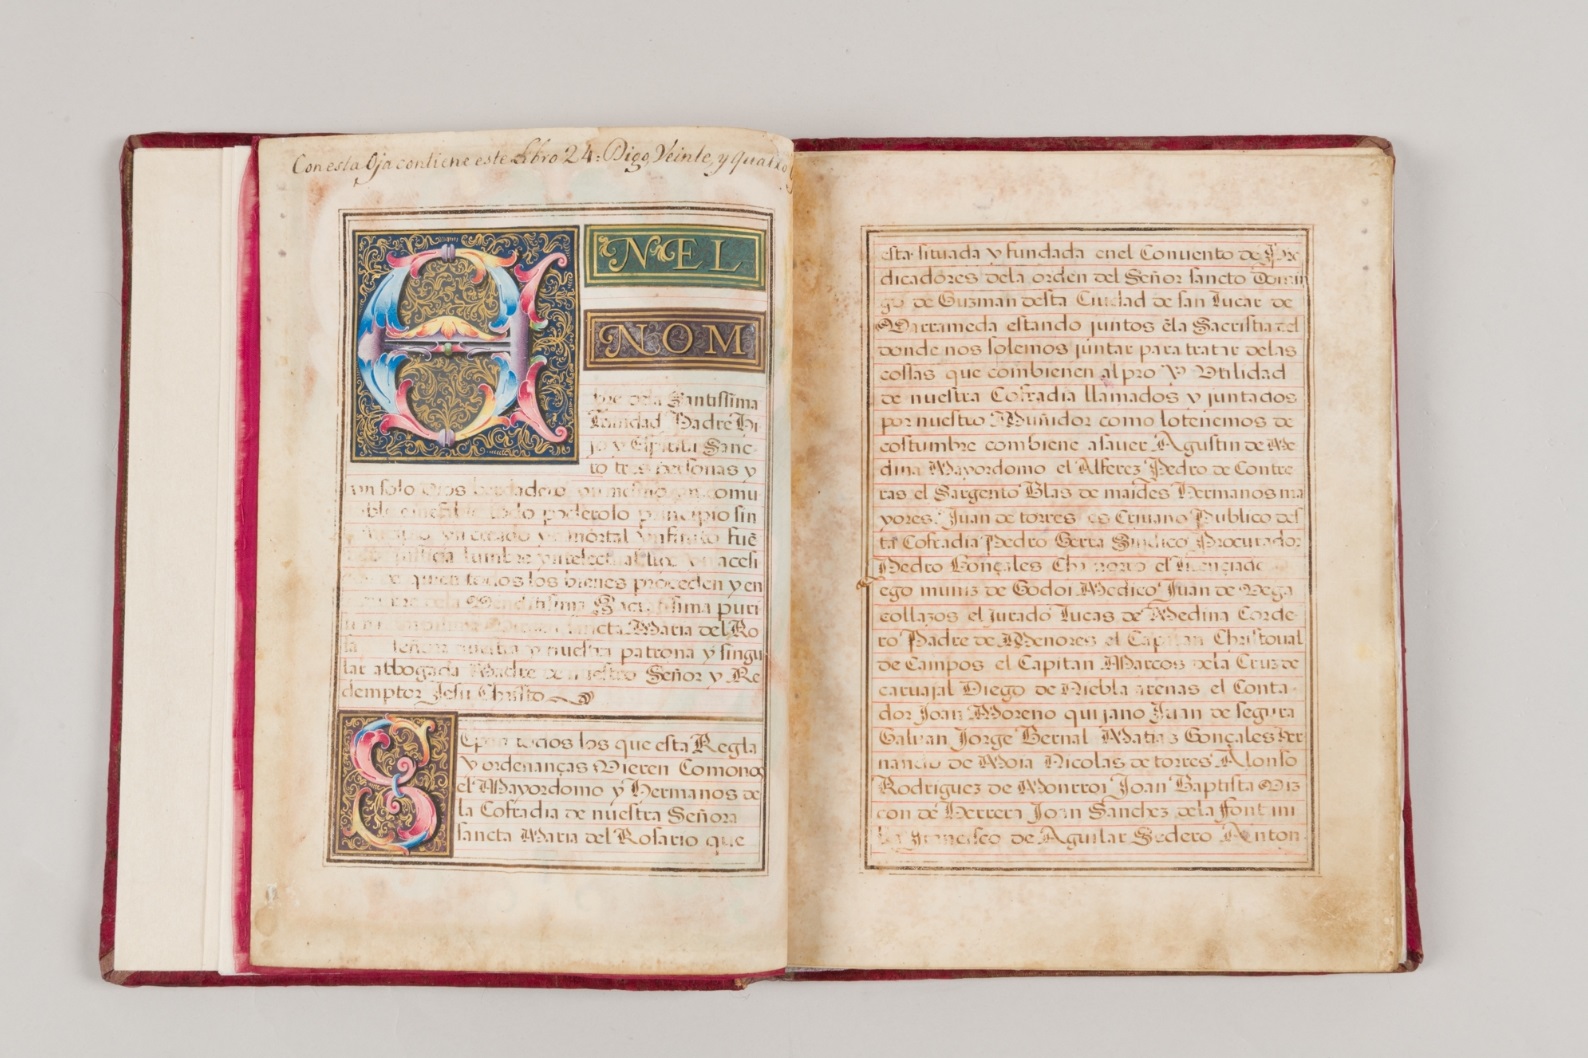 Con esta Oja contiene este Libro 24 = Digo, Veinte, y quatro
E NEL
NOM
bre dela Santissima
Trinidad Padre Hi
jo y Espiritu Sanc
to tres personas y
un solo Dios berdadero
todo poderoso principio sin
mortal
lumbre
quien todos los bienes proceden y en
dela Venditisima Sacratissima puri
sancta Maria del Ro
nuestra patrona y singu
lar abbogada Madre de nuestro Señor y Re
demptor Jesu Christo
SEpan todos los que esta Regla
y ordenanças Vieren Como nos
el Mayordomo y Hermanos de
la Cofradia de nuestra Señora
sancta Maria del Rosario que
esta situada y fundada en el Conuento de Pre
dicadores dela orden del Señor sancto Domin
go de Guzman desta Ciudad de san lucar de
Barrameda estando juntos ēla Sacristia del
donde nos solemos juntar para tratar delas
cossas que combienen al pro y Vtilidad
de nuestra Cofradia llamados y juntados
por nuestro Muñidor como lo tenemos de
costumbre combiene asauer Agustin de Me
dina Mayordomo el Alferez Pedro de Contre
ras el Sargento Blas de maides Hermanos ma
yores. Juan de torres es Criuano Publico des
ta Cofradia Pedro Serra Sindico Procurador
Pedro Gonçales el licenciado
ego muniz de Godoi Medico Juan de Vega
collazos el jurado Lucas de Medina Corde-
ro Padre de Menores el Capitan Christoual
de Campos el Capitan Marcos dela Cruz de
caruajal Diego de Niebla arenas el Conta-
dor Joan Moreno quijano Juan de segura
Galuan Jorge Bernal Matias Gonçales fer
nando de Moia Nicolas de torres Alonso
Rodriguez de Monrroi Joan Baptista Viz
con de Herrera Joan Sanchez dela font ini
Francisco de Aguilar Sedero Anton